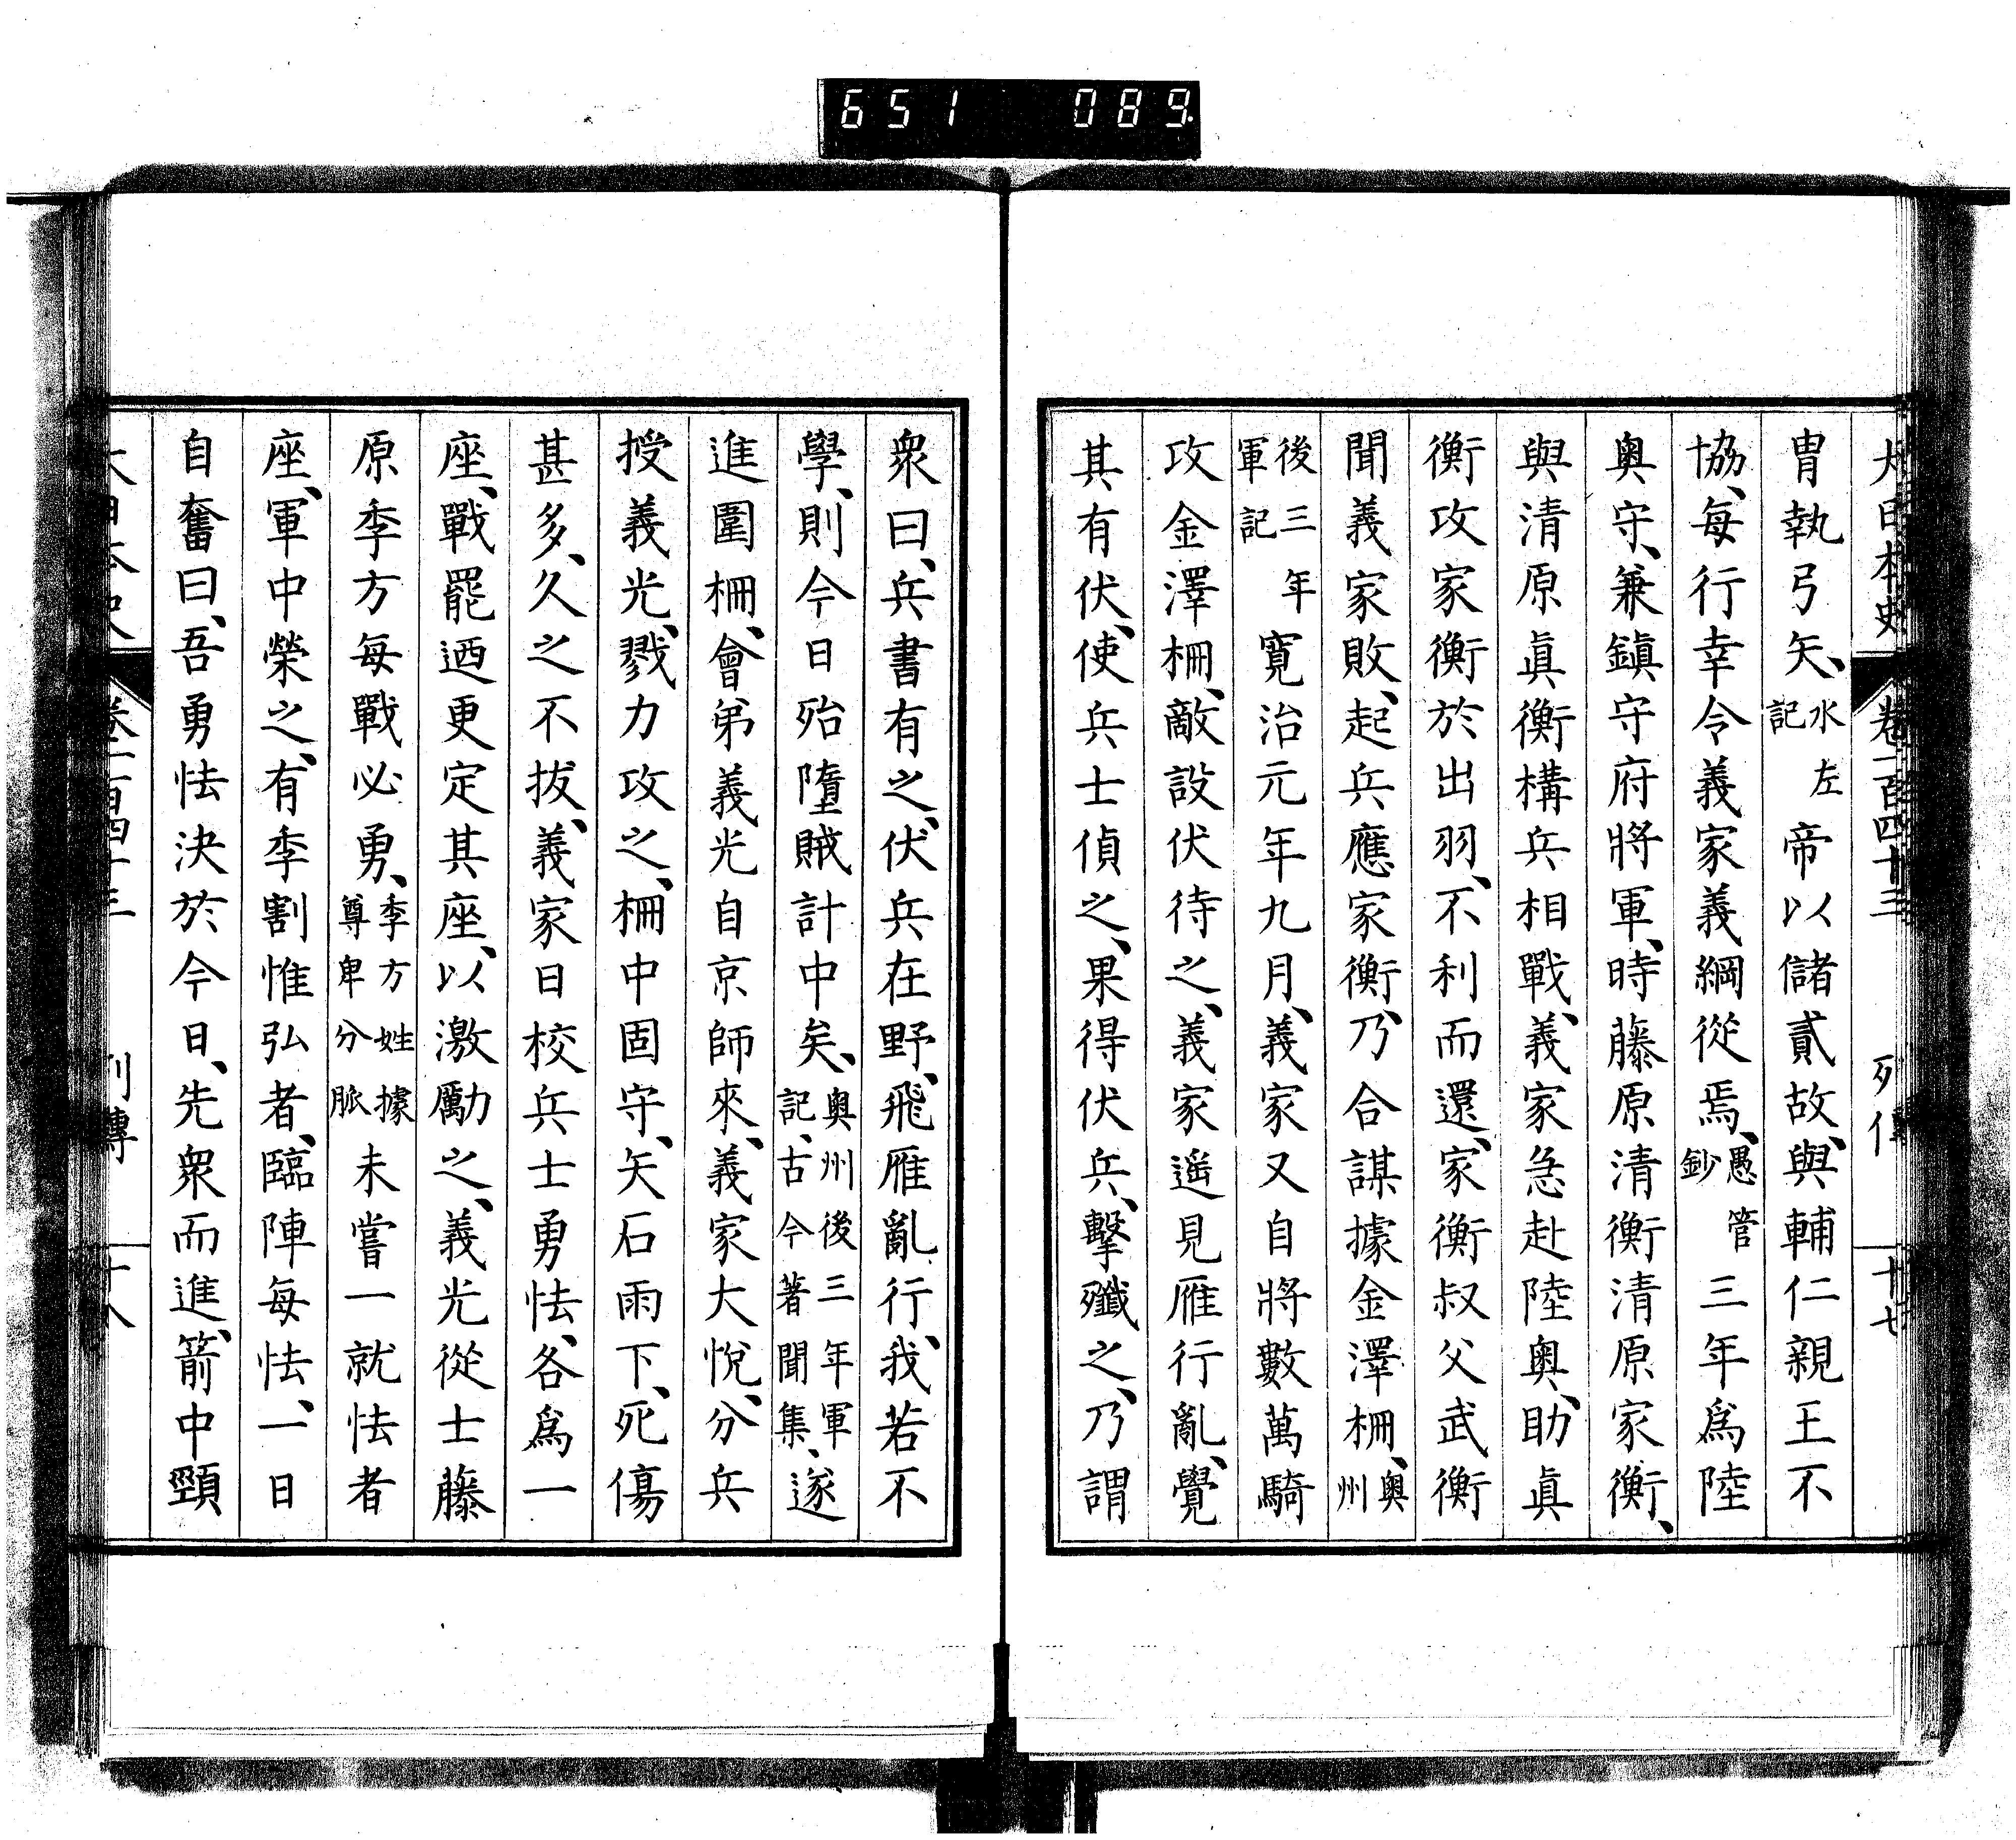 651 089
大日本史 卷一百四十三 列傳 十七
冑執弓矢、水左記帝以儲貳故、與輔仁親王不
協、每行幸令義家義綱從焉、愚管鈔三年爲陸
奧守、兼鎭守府將軍、時藤原淸衡淸原家衡、
與淸原眞衡構兵相戰、義家急赴陸奧、助眞
衡攻家衡於出羽、不利而還、家衡叔父武衡
聞義家敗、起兵應家衡、乃合謀據金澤柵、奧州
後三年軍記寬治元年九月、義家又自將數萬騎
攻金澤柵、敵設伏待之、義家遥見雁行亂、覺
其有伏、使兵士偵之、果得伏兵、擊殲之、乃謂
衆曰、兵書有之、伏兵在野、飛雁亂行、我若不
學、則今日殆墮賊計中矣、奧州後三年軍記、古今著聞集、遂
進圍柵、會弟義光自京師來、義家大悅、分兵
授義光、戮力攻之、柵中固守、矢石雨下、死傷
甚多、久之不拔、義家日校兵士勇怯、各爲一
座、戰罷迺更定其座、以激勵之、義光從士藤
原季方每戰必勇、季方姓據尊卑分脈未嘗一就怯者
座、軍中榮之、有季割惟弘者、臨陣每怯、一日
自奮曰、吾勇怯決於今日、先衆而進、箭中頸
大日本史 卷一百四十三 列傳 十八